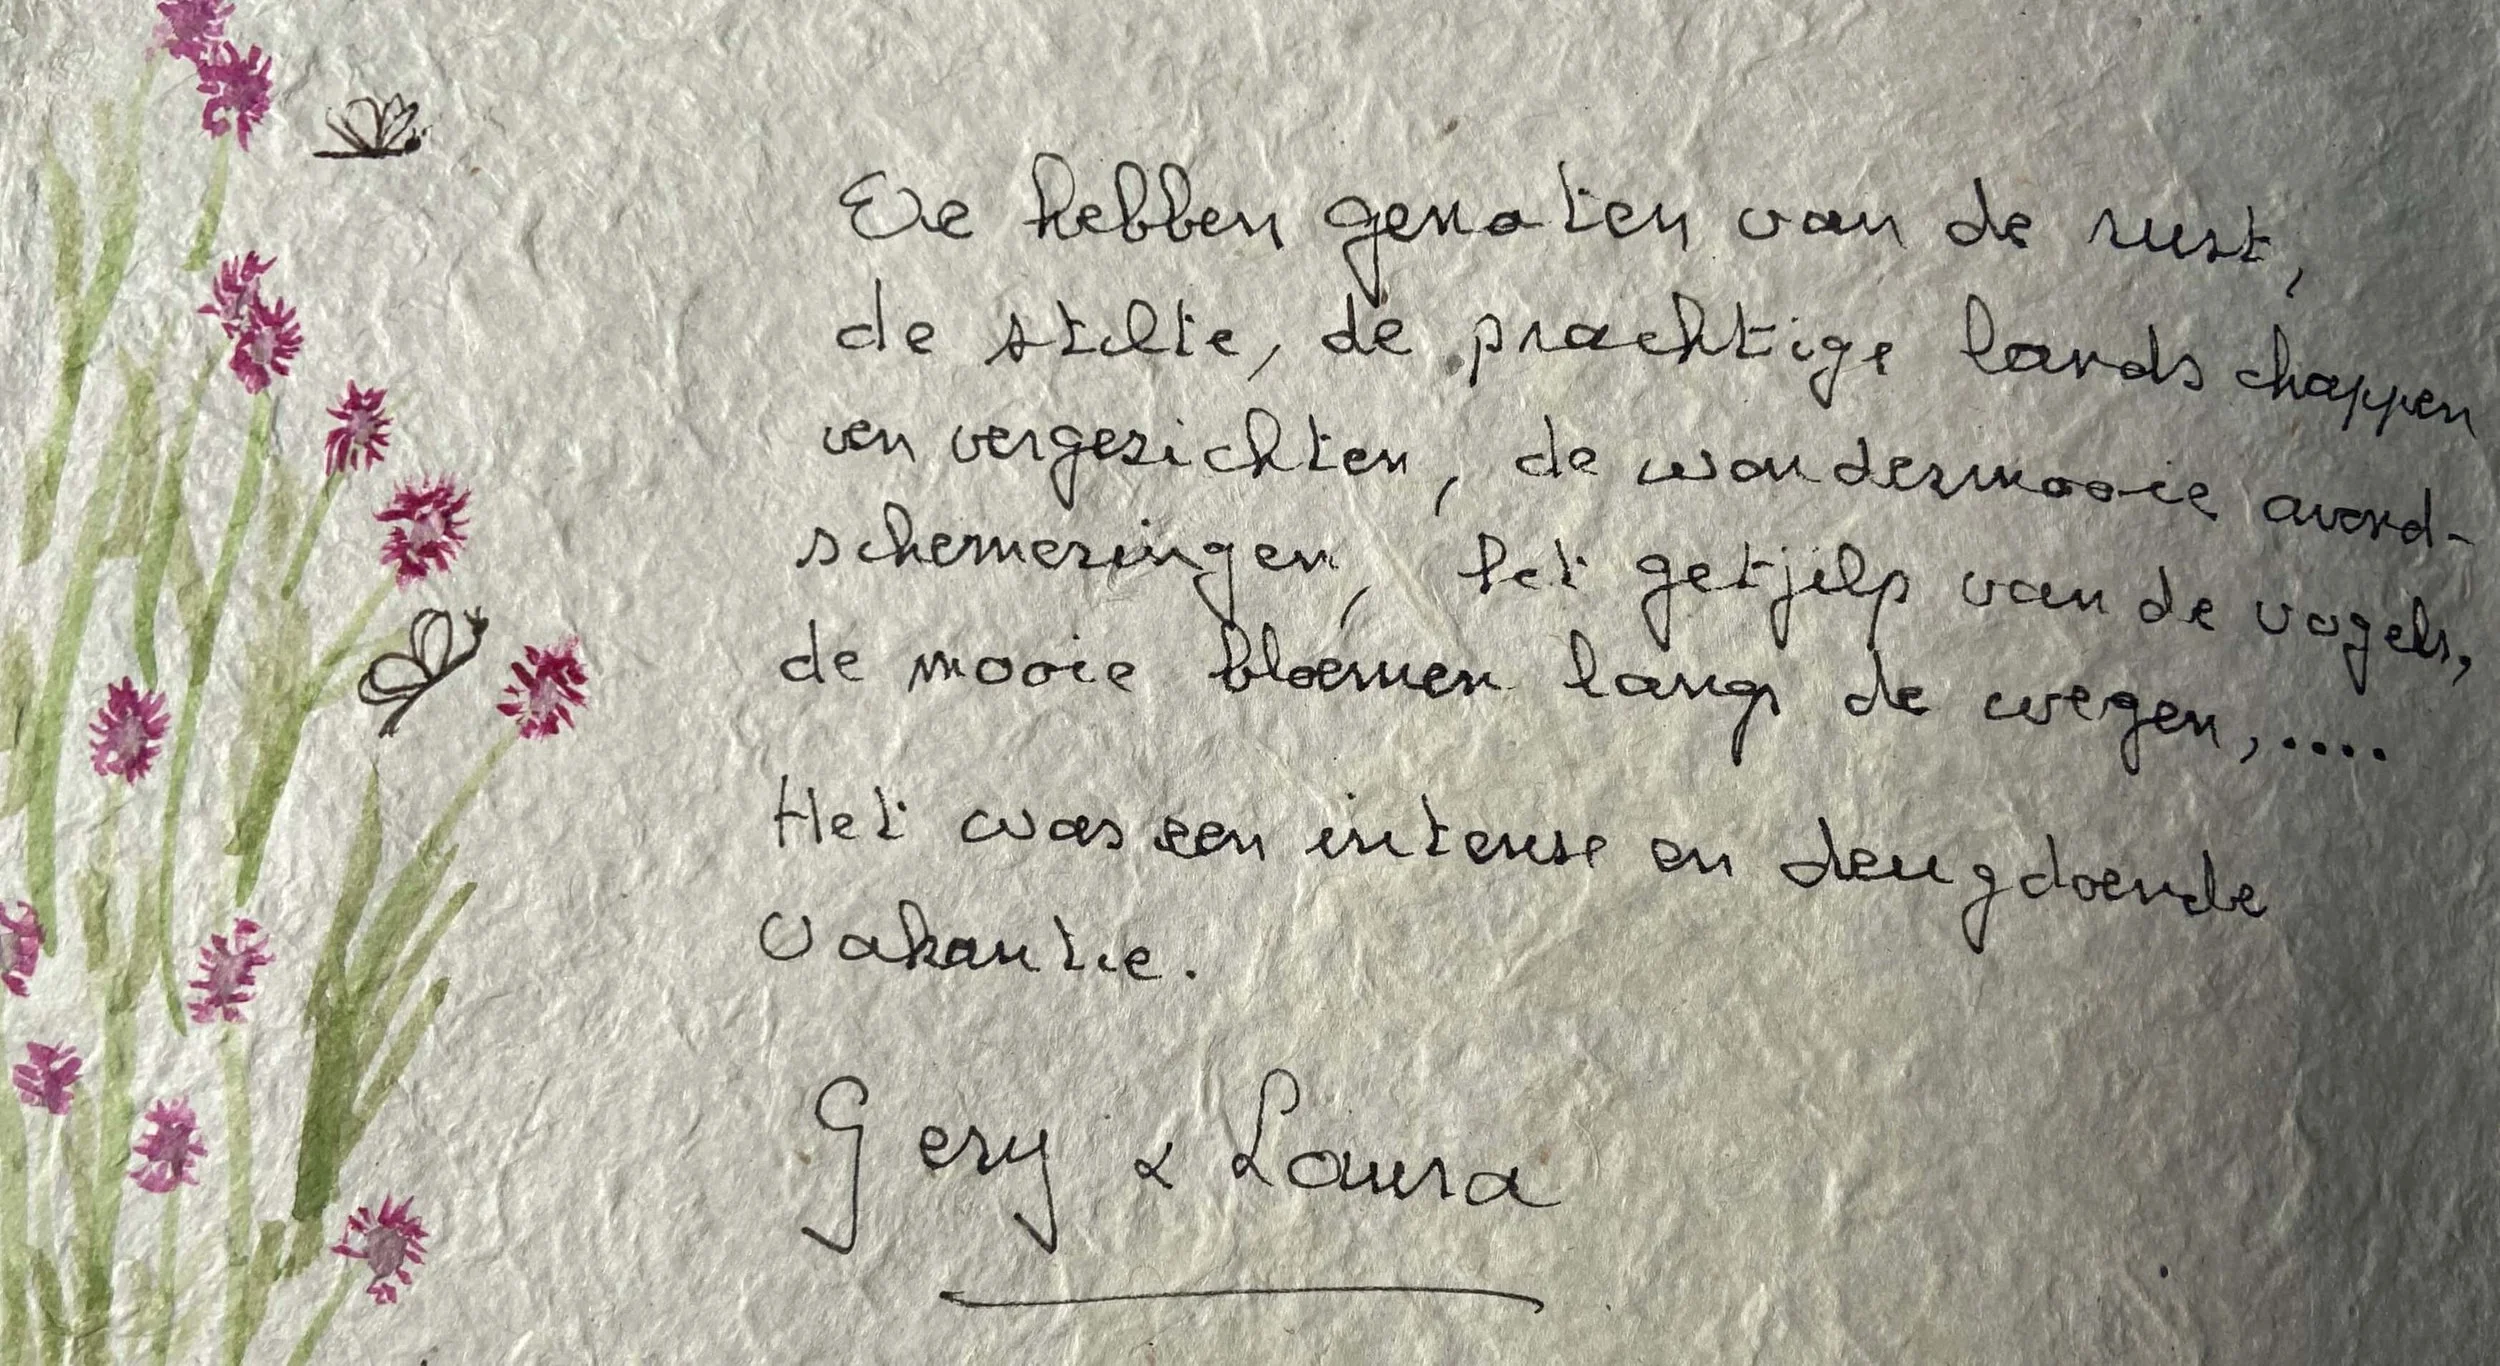 We hebben genoten van de rust,
de stilte, de prachtige landschappen
en vergezichten, de wondermooie avond-
schemeringen, het getjilp van de vogels,
de mooie bloemen langs de wegen, ....
Het was een intense en deugdoende
vakantie.
Gery & Laura